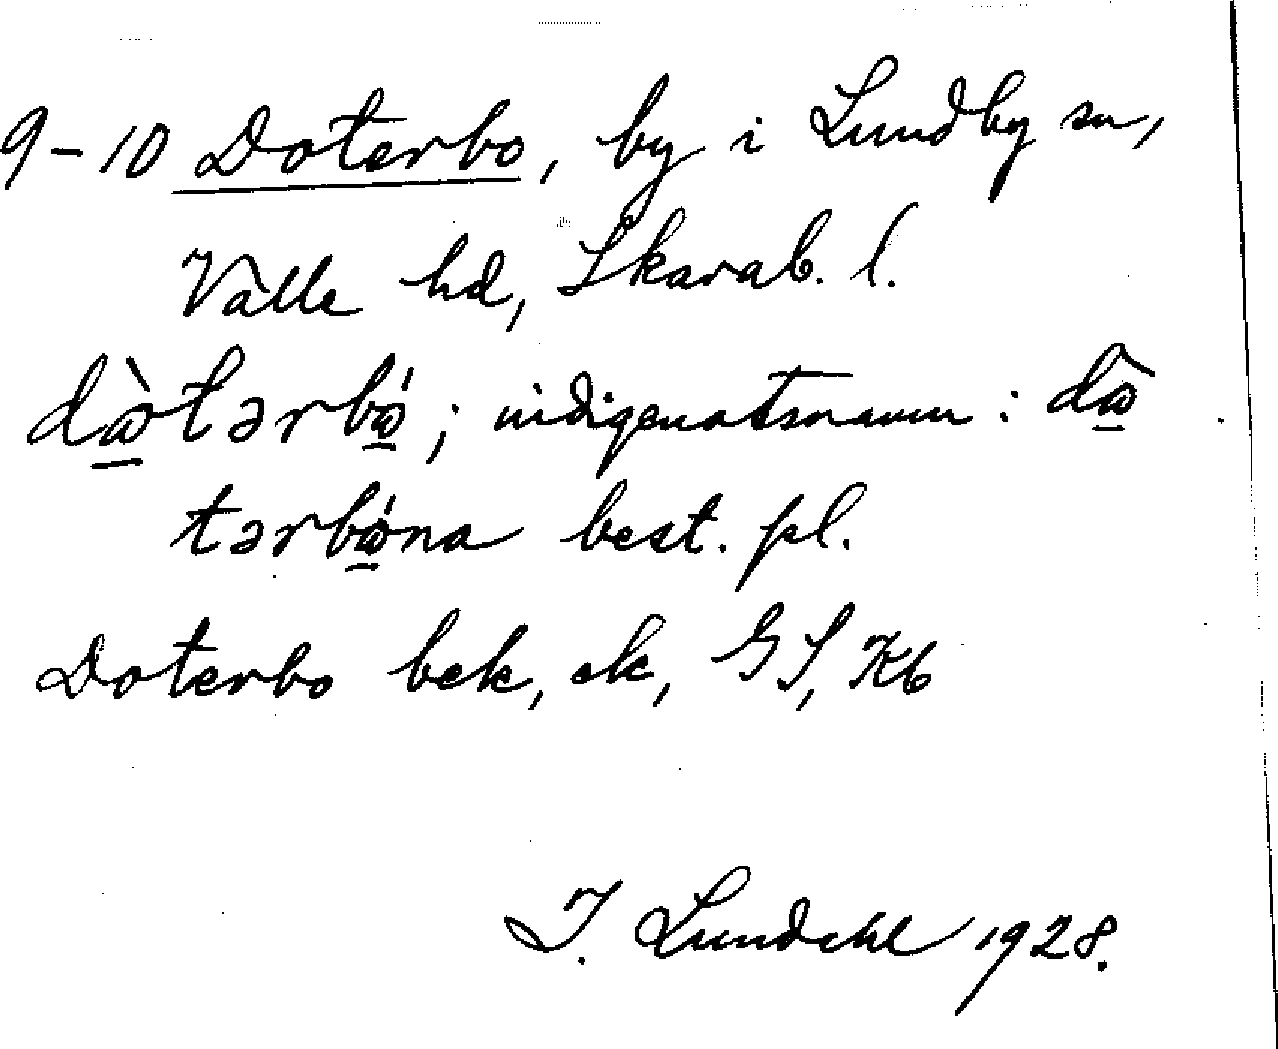 9-10 Doterbo, by i Lundby sn,
Valle hd, Skarab. l.
dò̱tərbó̱; indigenatsnamn: dò̱
tərbó̱na best. pl.
Doterbo bek, ek, GS, Kb
I. Lundahl 1928.